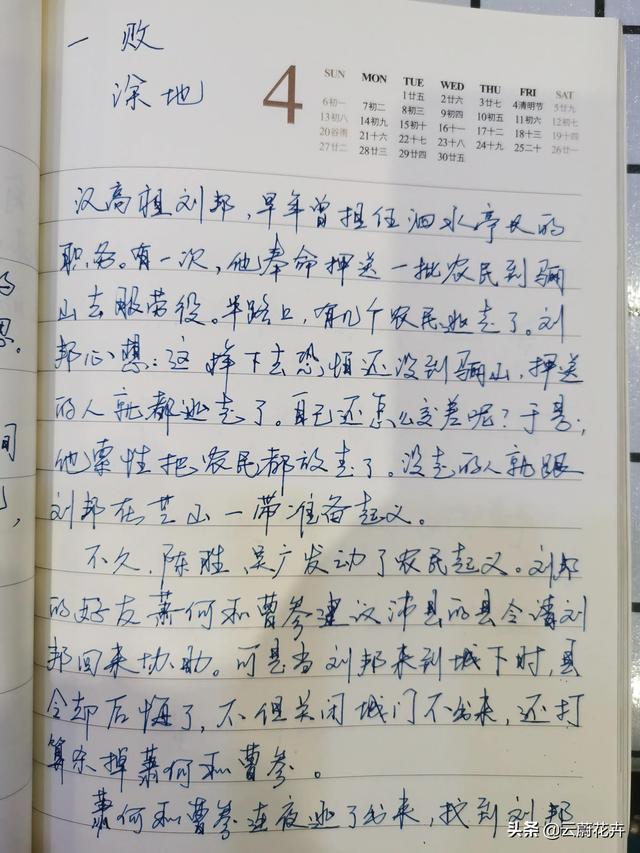 一败
涂地
4
SUN MON TUE WED THU FRI SAT
1廿五 2廿六 3廿七 4清明节 5廿九
6初一 7初二 8初三 9初四 10初五 11初六 12初七
13初八 14初九 15初十 16十一 17十二 18十三 19十四
20谷雨 21十六 22十七 23十八 24十九 25二十 26廿一
27廿二 28廿三 29廿四 30廿五
汉高祖刘邦,早年曾担任泗水亭长的
职务。有一次,他奉命押送一批农民到骊
山去服劳役。半路上,有几个农民逃走了。刘
邦心想:这样下去恐怕还没到骊山,押送
的人就都逃走了。自己还怎么交差呢?于是,
他索性把农民都放走了。没走的人就跟
刘邦在芒山一带准备起义。
不久,陈胜,吴广发动了农民起义。刘邦
的好友萧何和曹参建议沛县的县令请刘
邦回来协助。可是当刘邦来到城下时,县
令却后悔了,不但关闭城门不出来,还打
算杀掉萧何和曹参。
萧何和曹参连夜逃了出来,找到刘邦
的
思.
间
,
头条@云蔚花卉